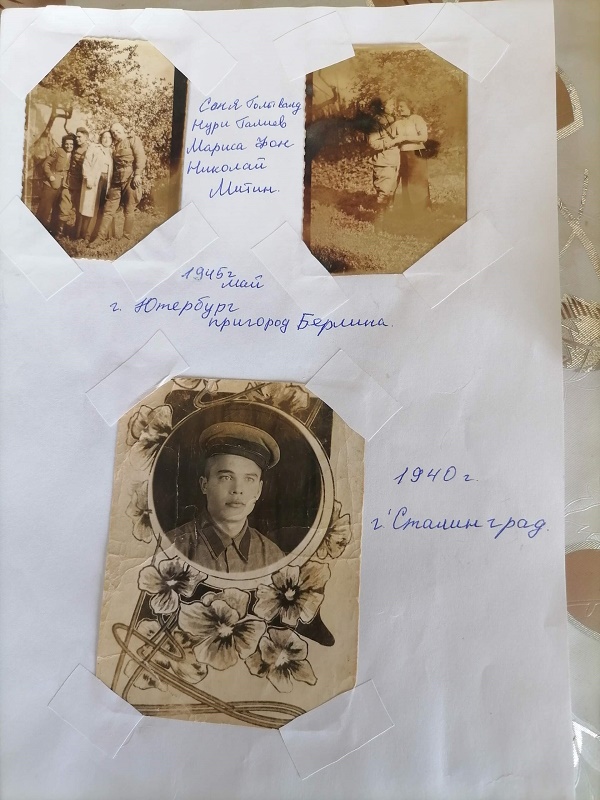 Соня Голывалд
Нури Галиев
Мариса Фон
Николай
Митин.
1945г
май
г. Ютербург
пригород Берлина.
1940 г.
г. Сталинград.